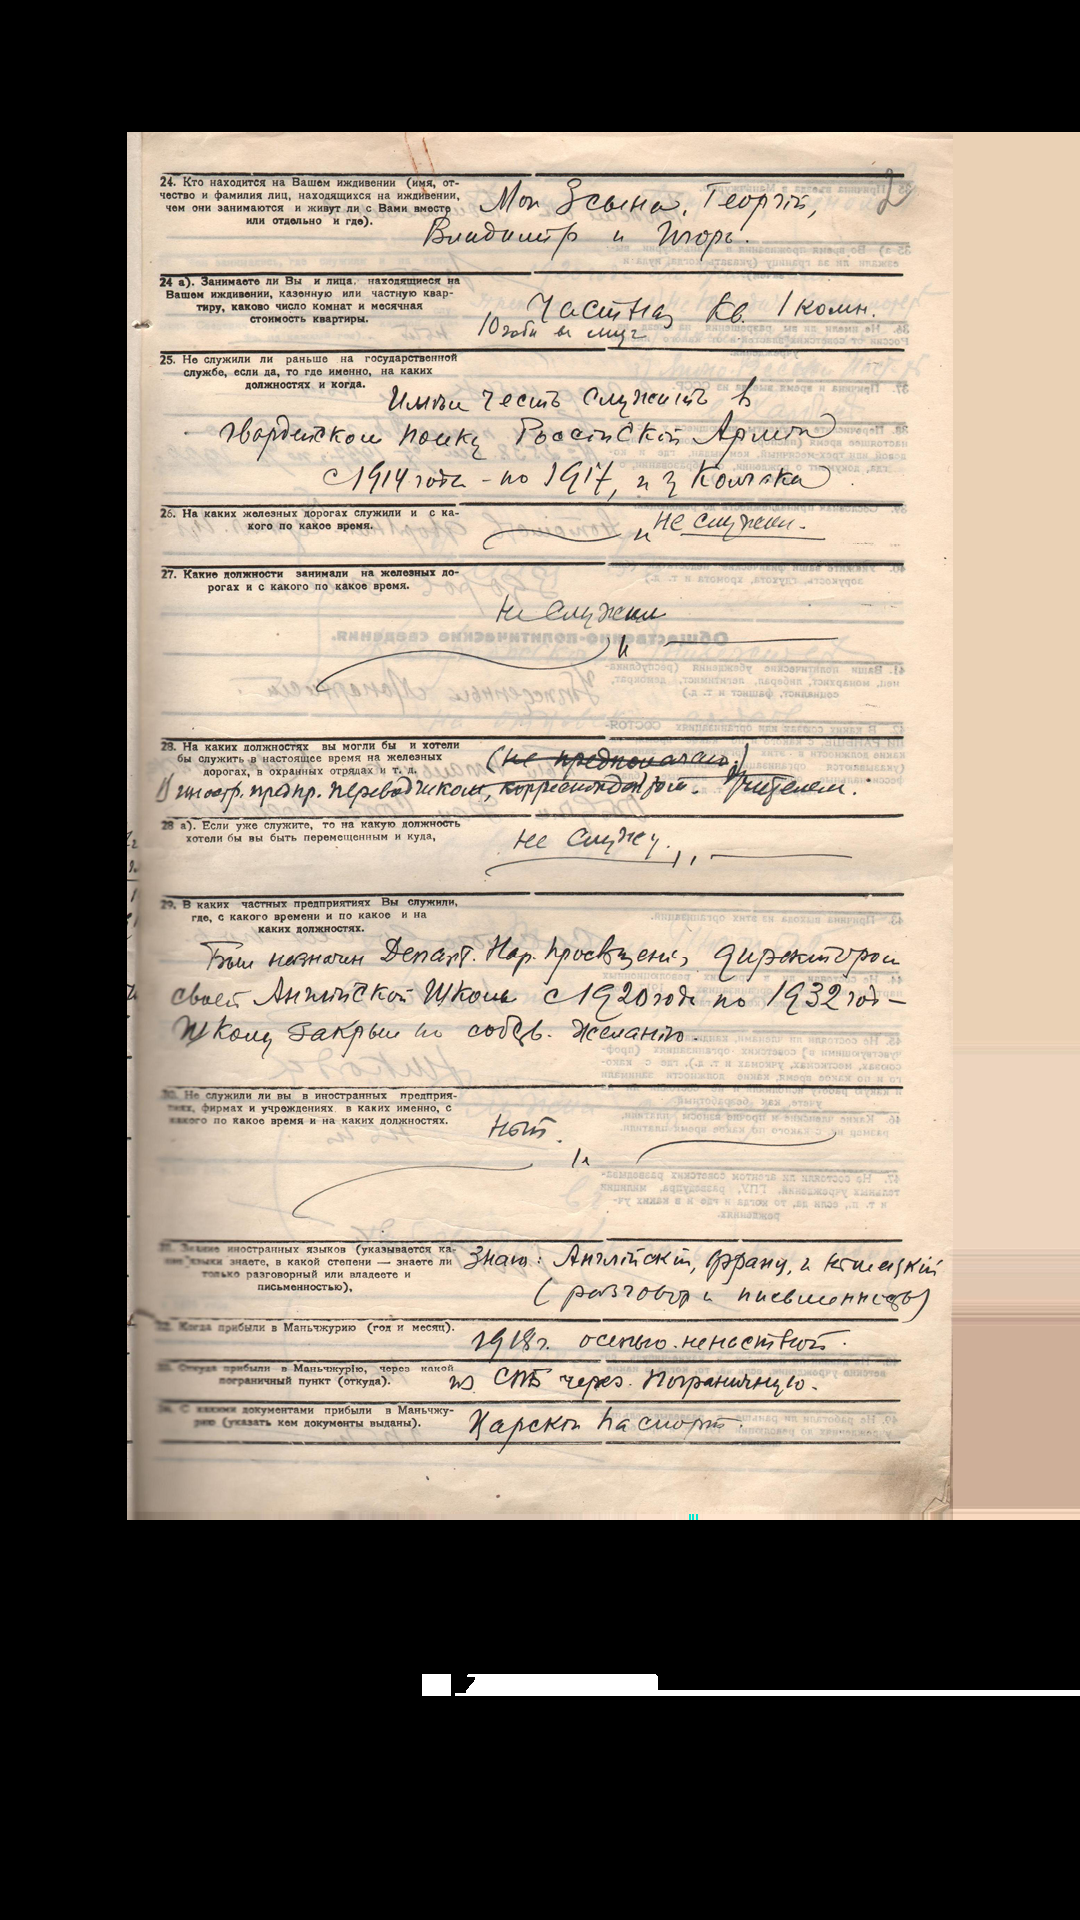 2
24. Кто находится на Вашем иждивении (имя, от-
чество и фамилия лиц, находящихся на иждивении,
чем они занимаются и живут ли с Вами вместе
или отдельно и где).
Мои 3 сына, Георгій,
Владимир и Игорь.
24 а). Занимаете ли Вы и лица, находящиеся на
Вашем иждивении, казенную или частную квар-
тиру, каково число комнат и месячная
стоимость квартиры.
Частная кв. 1 комн.
10 гоби в
25. Не служили ли раньше на государственной
службе, если да, то где именно, на каких
должностях и когда.
Имѣл честь служить в
гвардейском полку Россійскій Арміи
с 1914 года - по 1917, и у Колчака
26. На каких железных дорогах служили и с ка-
кого по какое время.
не служил.
27. Какие должности занимали на железных до-
рогах и с какого по какое время.
Не служил
28. На каких должностях вы могли бы и хотели
бы служить в настоящее время на железных
дорогах, в охранных отрядах и т. д.
(не предполагаю.)
иностр. предпр. переводчиком, корреспондент. Учителем.
28 а). Если уже служите, то на какую должность
хотели бы вы быть перемещенным и куда,
не служу.
29. В каких частных предприятиях Вы служили,
где, с какого времени и по какое и на
каких должностях.
Был назначен Департ. Нар. Просвѣщенія директором
своей Англійской Школы с 1920 года по 1932 год -
Школу закрыл по собств. желанію.
30. Не служили ли вы в иностранных предприя-
тиях, фирмах и учреждениях, в каких именно, с
какого по какое время и на каких должностях.
Нѣт.
31. Знание иностранных языков (указывается ка-
кие языки знаете, в какой степени — знаете ли
только разговорный или владеете и
письменностью),
Знаю: Англійскій, франц. и нѣмецкій
(разговор и письменность)
32. Когда прибыли в Маньчжурию (год и месяц).
1918 г. осенью ненастной.
33. Откуда прибыли в Маньчжурію, через какой
пограничный пункт (откуда).
из СПБ через Пограничную.
34. С какими документами прибыли в Маньчжу-
рию (указать кем документы выданы).
Царскій Паспорт.